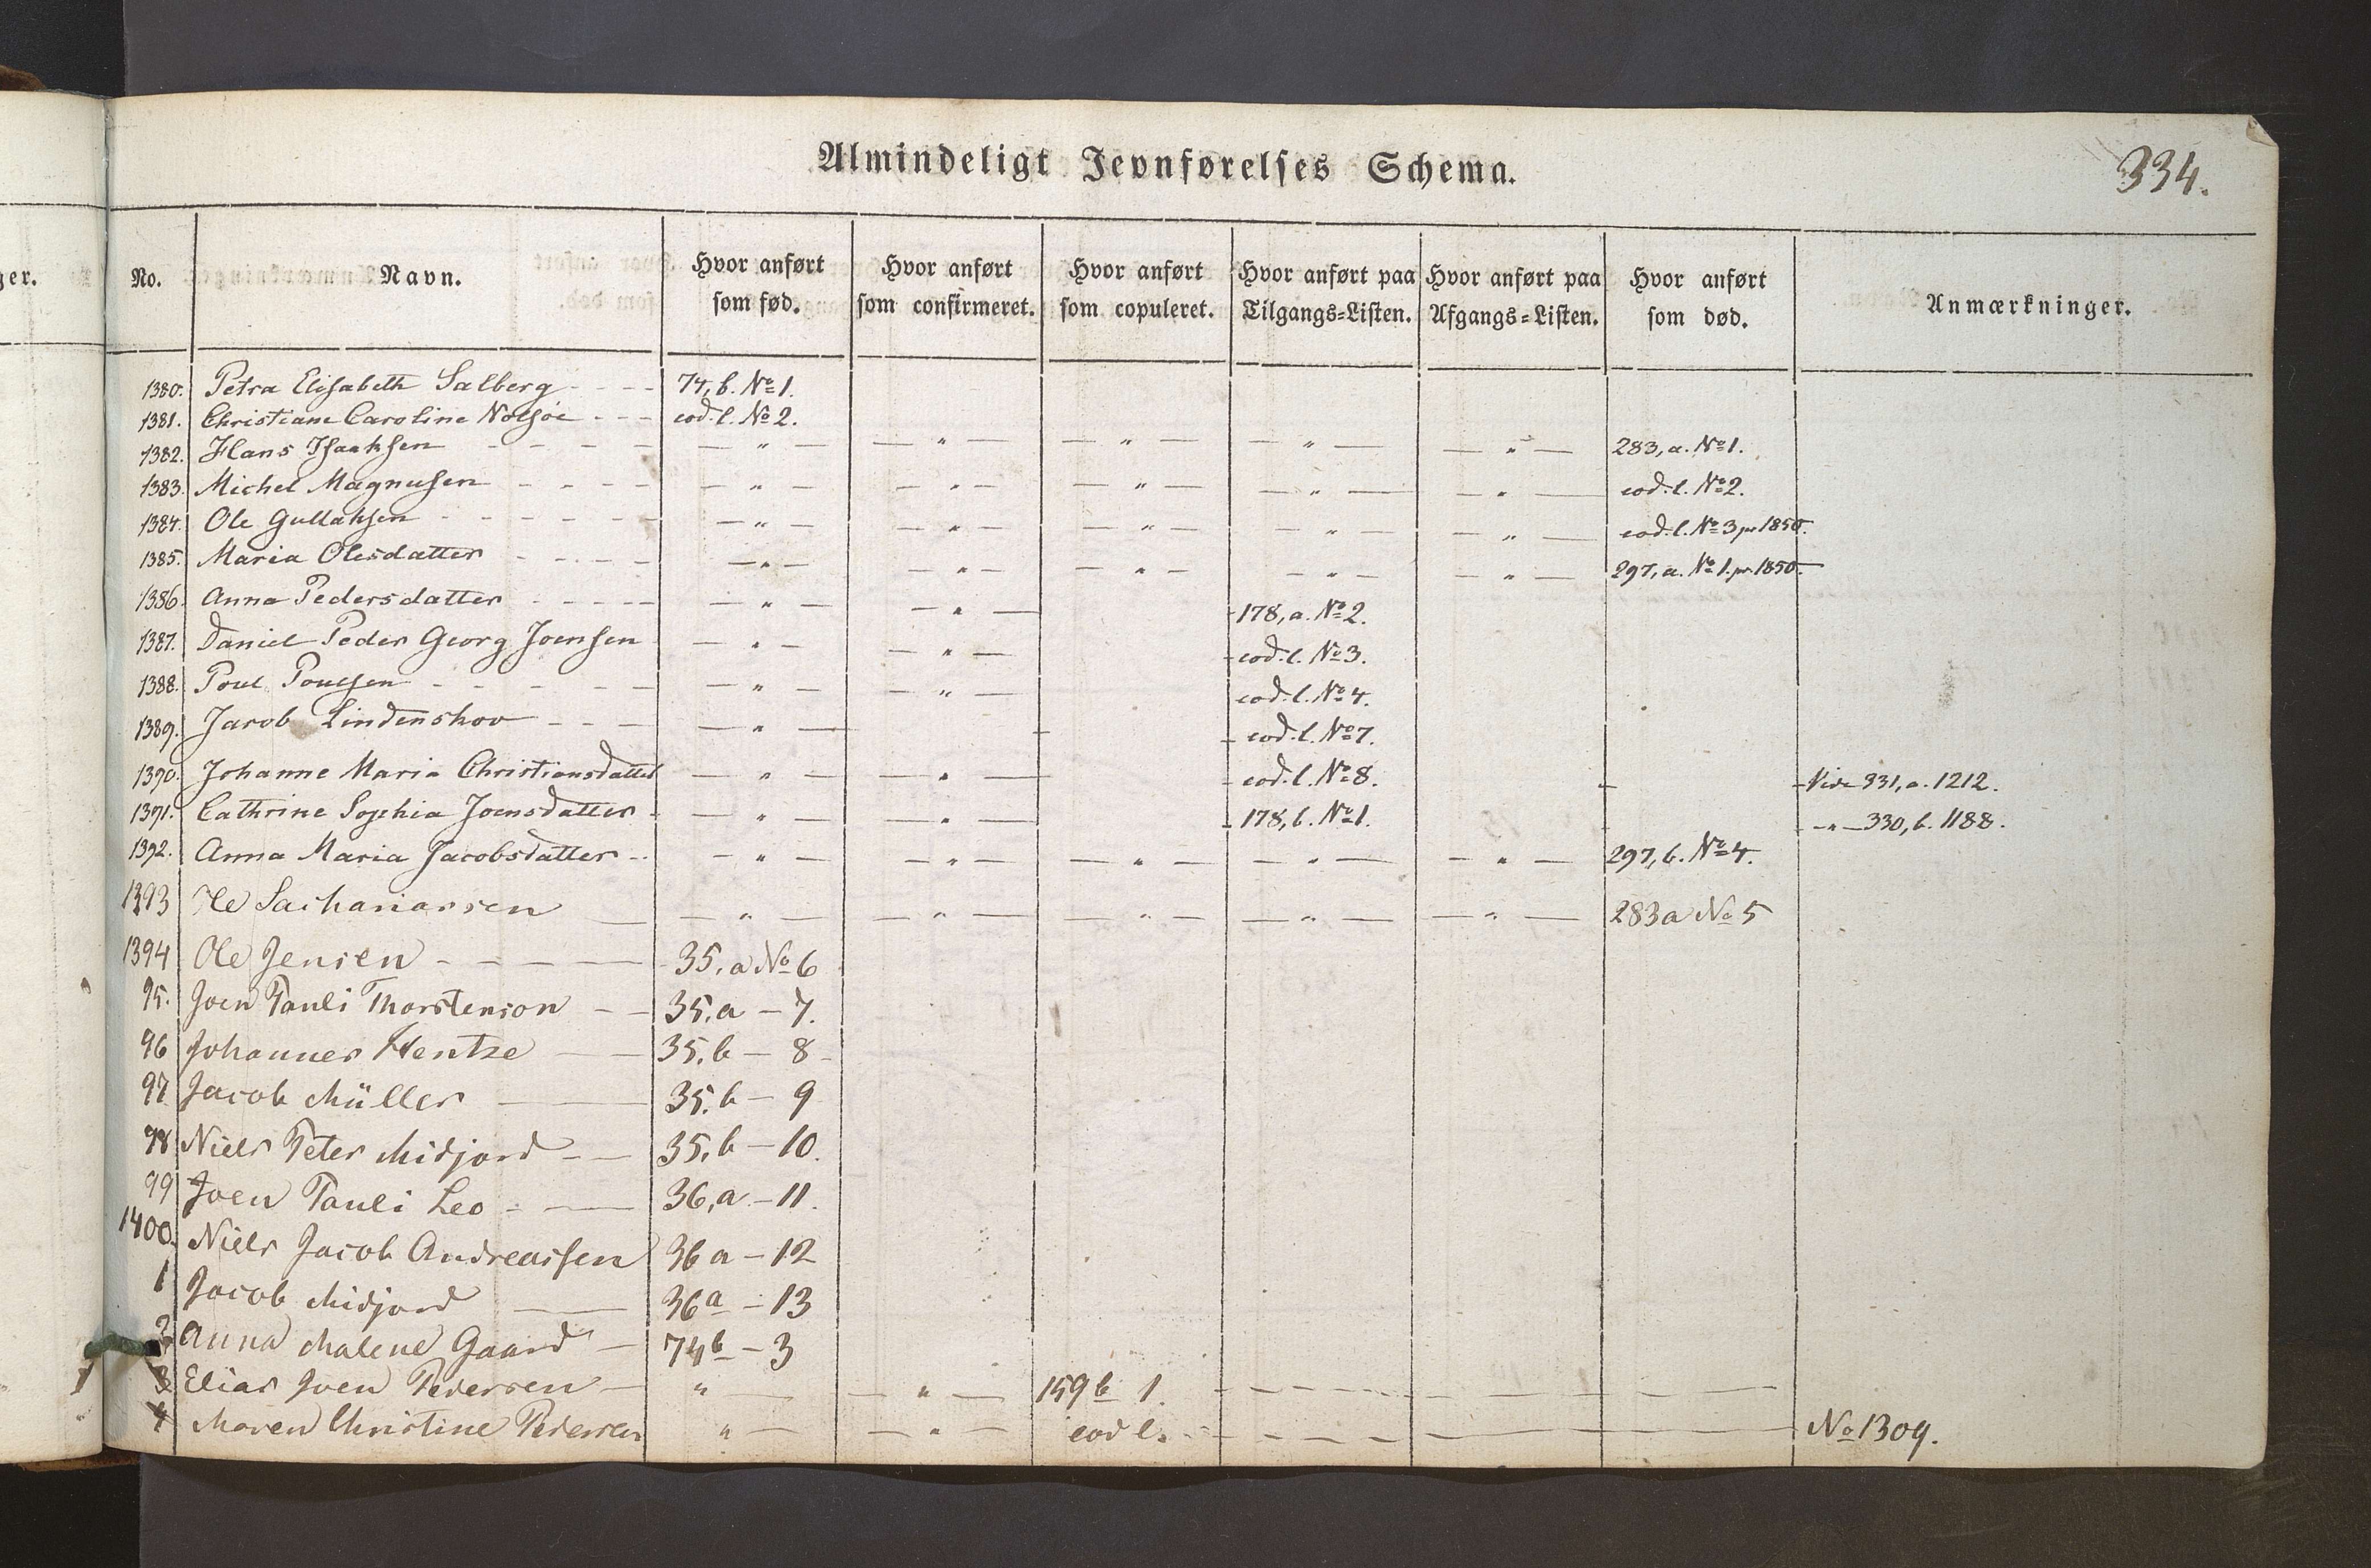 ger.
Almindeligt Jevnførelses Schema.
334.
No. Navn. Hvor anført som fød. Hvor anført som confirmeret. Hvor anført som copuleret. Hvor anført paa Tilgangs=Listen. Hvor anført paa Afgangs=Listen. Hvor anført som død. Anmærkninger.
1380. Petra Elisabeth Salberg - - - 74, b. No 1.
1381. Christiane Caroline Nolsøe - - - eod. l. No 2.
1382. Hans Isaaksen - - - - — " — — " — — " — — " — — " — 283, a. No 1.
1383. Michel Magnusen - - - - — " — — " — — " — — " — — " — eod. l. No 2.
1384. Ole Gullaksen - - - - - — " — — " — — " — — " — — " — eod. l. No 3 pr 1850.
1385. Maria Olesdatter - - - - — " — — " — — " — — " — — " — 297, a. No 1. pr. 1850.
1386. Anna Pedersdatter - - - - — " — — " — 178, a. No 2.
1387. Daniel Peder Georg Joensen — " — — " — eod. l. No 3.
1388. Poul Poulsen - - - - - — " — — " — eod. l. No 4.
1389. Jacob Lindenskov - - - — " — eod. l. No 7.
1390. Johanne Maria Christiansdatter — " — — " — eod. l. No 8. Vide 331, a. 1212.
1391. Cathrine Sophia Joensdatter - — " — — " — 178, b. No 1. — " — 330, b. 1188.
1392. Anna Maria Jacobsdatter - - — " — — " — — " — — " — — " — 297, b. No 4.
1393 Ole Sachariassen — — " — — " — — " — — " — — " — 283 a No 5
1394 Ole Jensen - — — — 35, a No 6
95. Joen Pauli Thorstenson - — 35, a — 7.
96 Johannes Hentze — — 35, b — 8 -
97 Jacob Müller — 35. b — 9
98 Niels Peter Midjord - — 35, b — 10.
99 Joen Pauli Leo - — 36, a — 11.
1400. Niels Jacob Andreassen 36 a — 12
1 Jacob Midjord — 36 a — 13
2 Anna Malene Gaard — 74 b — 3
3 Elias Joen Pedersen — " — — " — 159 b 1.
4 Maren Christine Pedersen " — — " — eod l. No 1309.